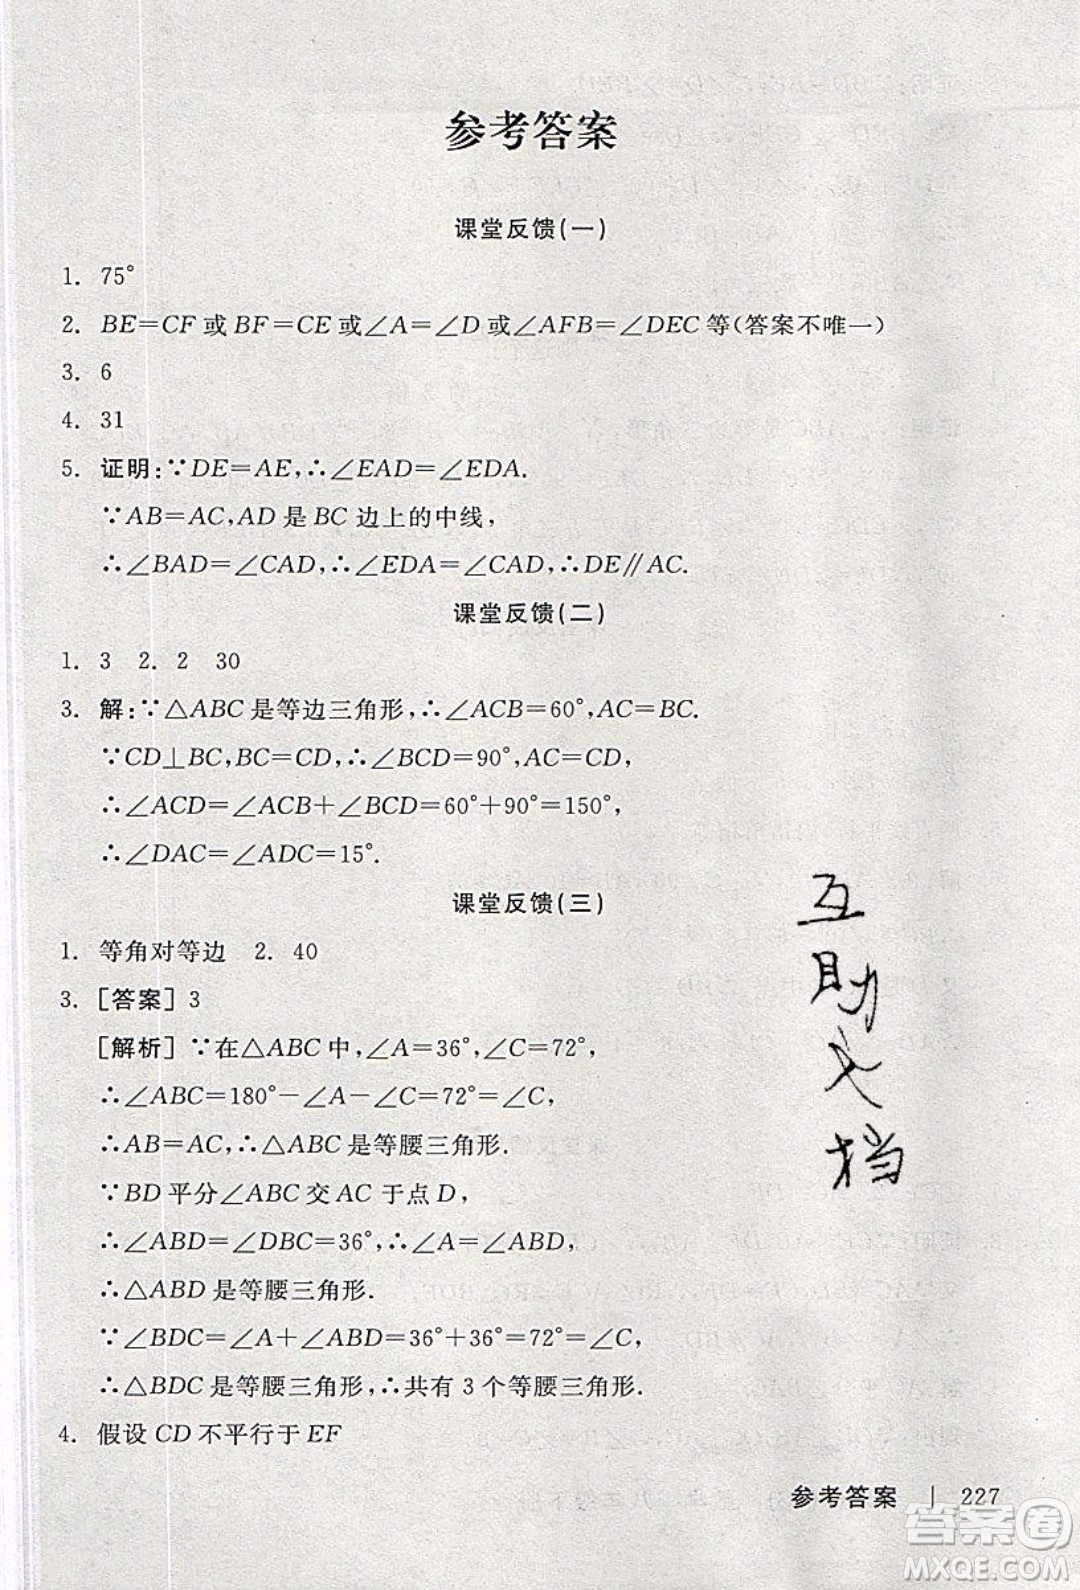 参考答案
课堂反馈(一)
1. 75°
2. BE=CF或BF=CE或∠A=∠D或∠AFB=∠DEC等(答案不唯一)
3. 6
4. 31
5. 证明:∵DE=AE,∴∠EAD=∠EDA.
∵AB=AC,AD是BC边上的中线,
∴∠BAD=∠CAD,∴∠EDA=∠CAD,∴DE∥AC.
课堂反馈(二)
1. 3 2. 2 30
3. 解:∵△ABC是等边三角形,∴∠ACB=60°,AC=BC.
∵CD⊥BC,BC=CD,∴∠BCD=90°,AC=CD,
∴∠ACD=∠ACB+∠BCD=60°+90°=150°,
∴∠DAC=∠ADC=15°.
课堂反馈(三)
1. 等角对等边 2. 40
3. [答案]3
[解析]∵在△ABC中,∠A=36°,∠C=72°,
∴∠ABC=180°-∠A-∠C=72°=∠C,
∴AB=AC,∴△ABC是等腰三角形.
∵BD平分∠ABC交AC于点D,
∴∠ABD=∠DBC=36°,∴∠A=∠ABD,
∴△ABD是等腰三角形.
∵∠BDC=∠A+∠ABD=36°+36°=72°=∠C,
∴△BDC是等腰三角形,∴共有3个等腰三角形.
4. 假设CD不平行于EF
互
助
文
档
参考答案 | 227
答案圈
MXQE.COM